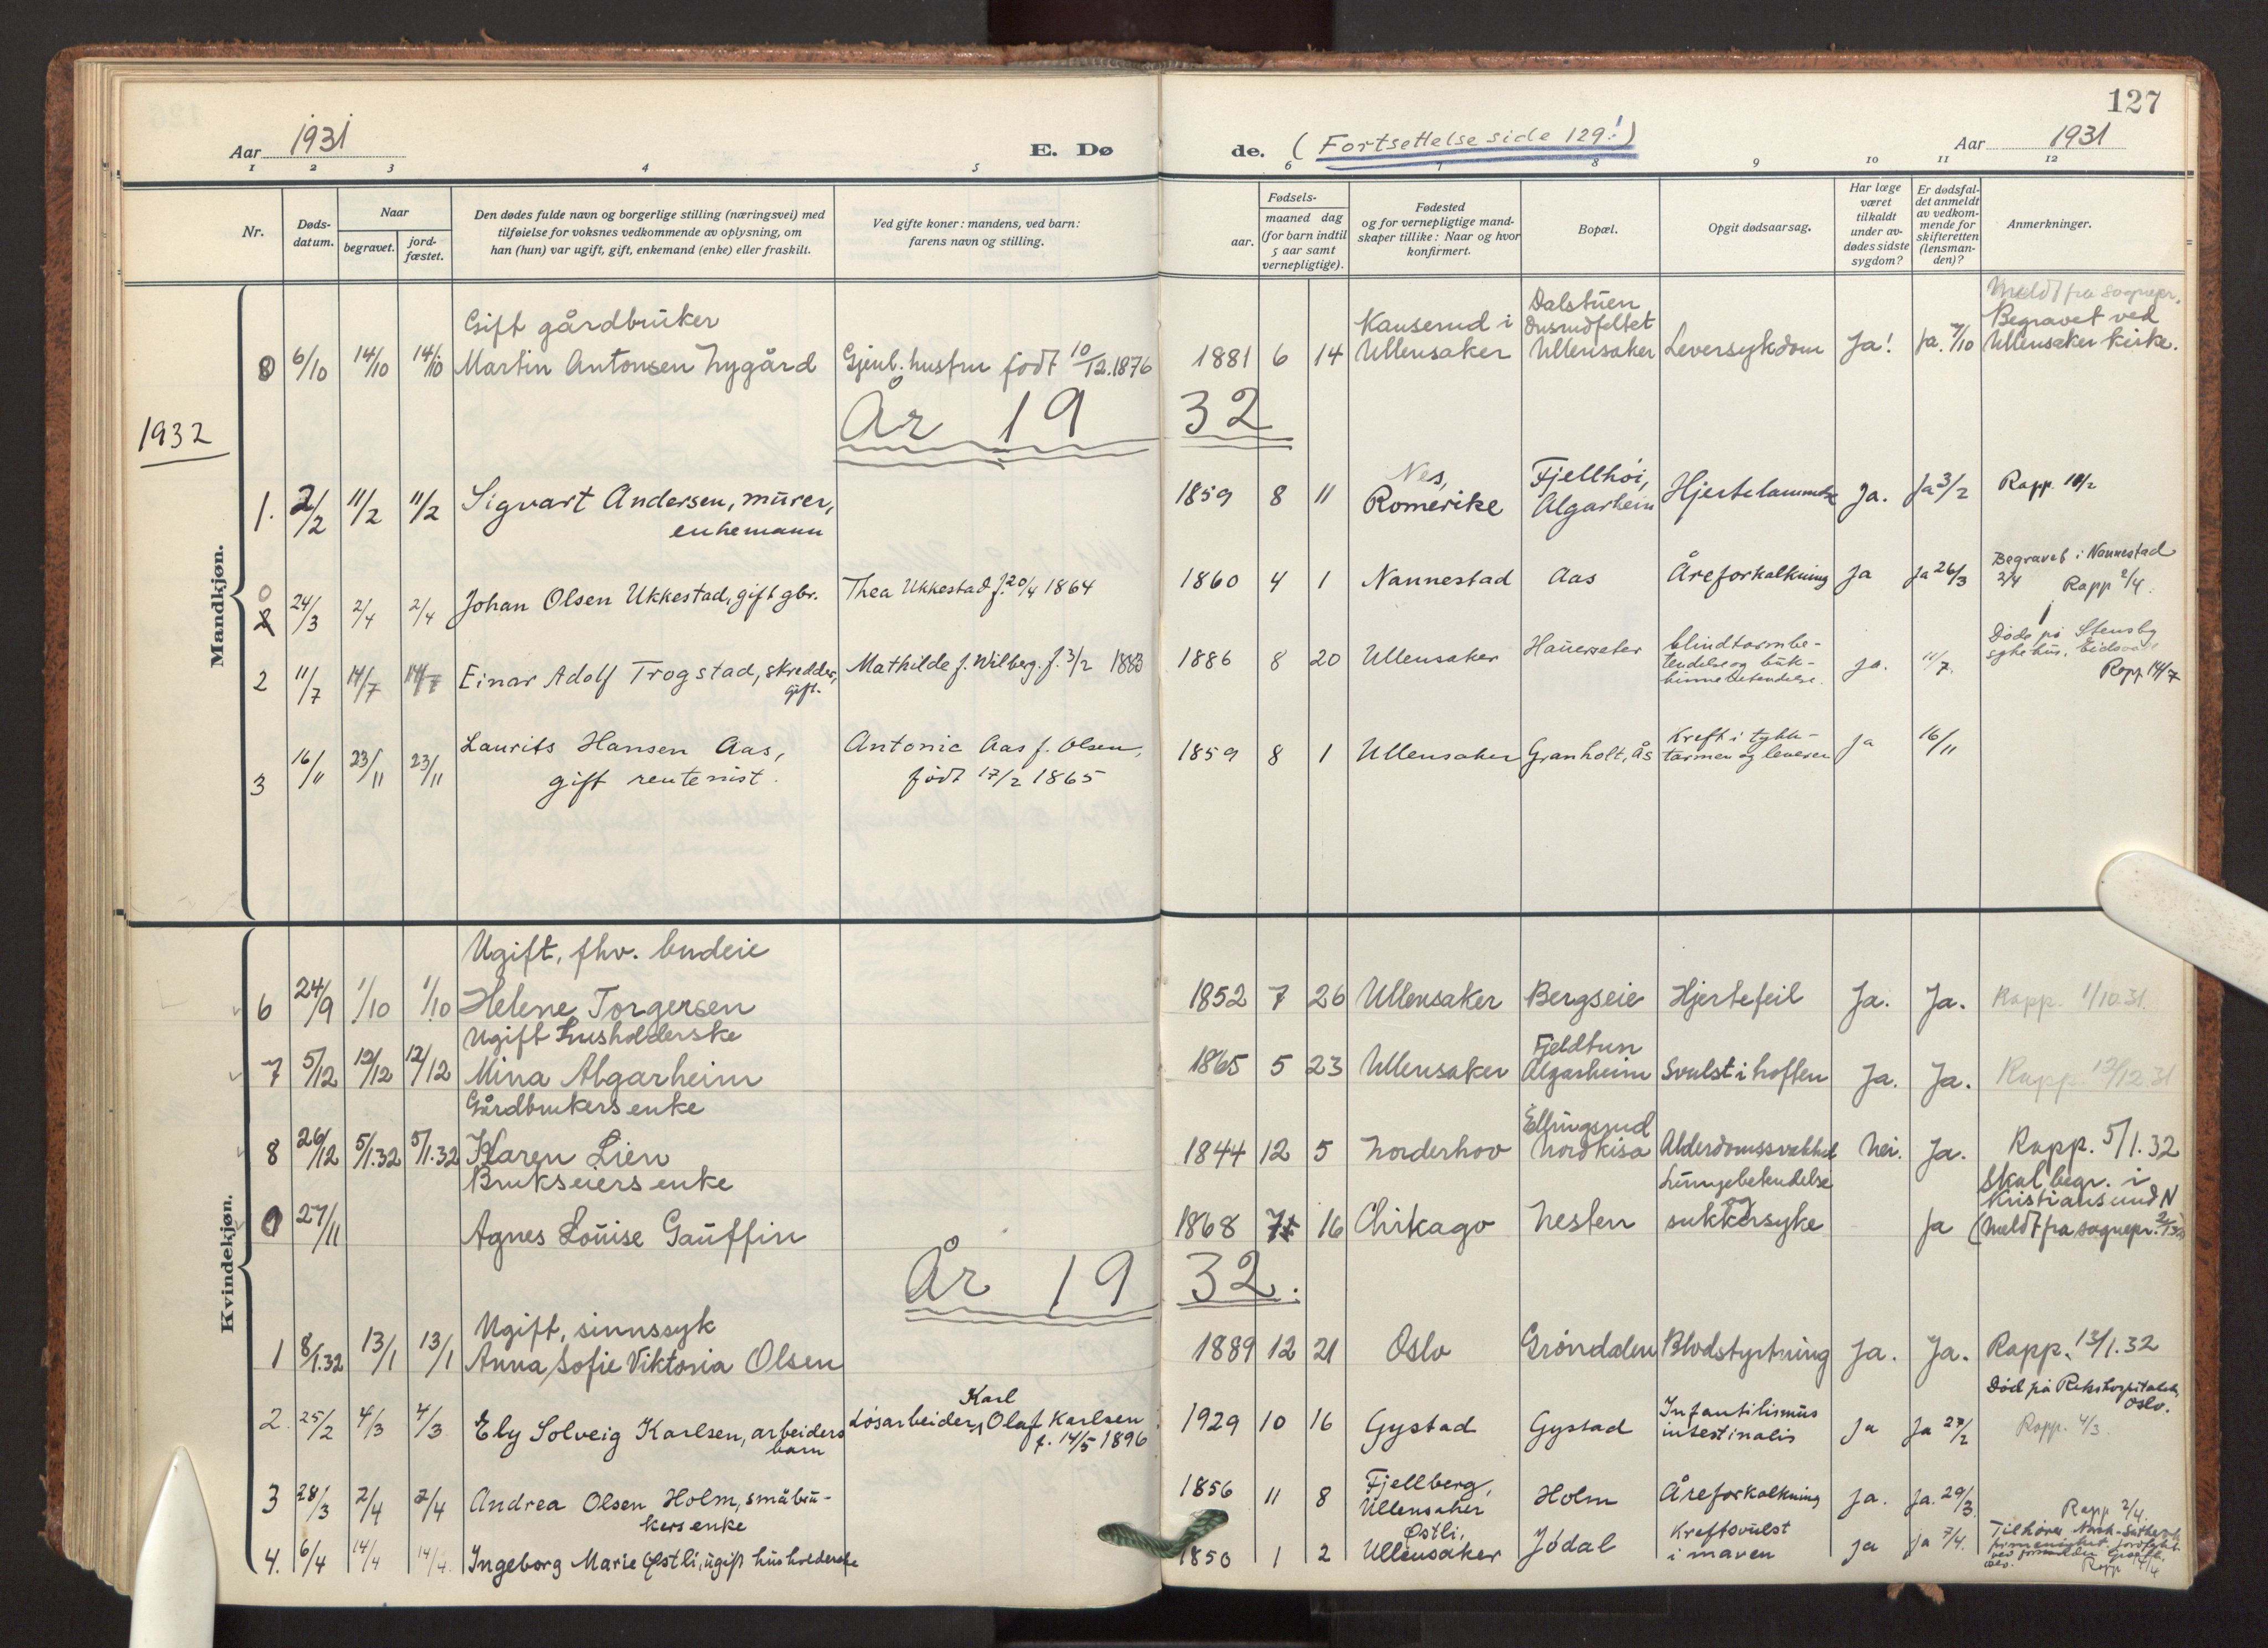 127
Aar 1931
E. Dø
de. (Fortsettelse side 129!)
Aar 1931
1 2 3 4 5 6 7 8 9 10 11 12
Nr.
Døds-
datum.
Naar
begravet.
jord-
fæstet.
Den dødes fulde navn og borgerlige stilling (næringsvei) med
tilføielse for voksnes vedkommende av oplysning, om
han (hun) var ugift, gift, enkemand (enke) eller fraskilt.
Ved gifte koner: mandens, ved barn:
farens navn og stilling.
Fødsels-
aar.
maaned dag
(for barn indtil
5 aar samt
vernepligtige).
Fødested
og for vernepligtige mand-
skaper tillike: Naar og hvor
konfirmert.
Bopæl.
Opgit dødsaarsag.
Har læge
været
tilkaldt
under av-
dødes sidste
sygdom?
Er dødsfal-
det anmeldt
av vedkom-
mende for
skifteretten
(lensman-
den)?
Anmerkninger.
Mandkjøn.
Gift gårdbruker
8 6/10 14/10 14/10 Martin Antonsen Nygård
Gjenl. hustru født 10/12.1876
1881 6 14
Kauserud i
Ullensaker
Dalstuen
Onsrudfeltet
Ullensaker
Leversykdom Ja! Ja. 7/10
Meldt fra sognepr.
Begravet ved
Ullensaker kirke.
1932
År 1932
1. 2/2 11/2 11/2 Sigvart Andersen, murer,
enkemann
1859 8 11
Nes,
Romerike
Fjellhøi,
Algarheim
Hjertelammelse Ja. Ja 3/2 Rapp. 10/2
0
2 24/3 2/4 2/4 Johan Olsen Ukkestad, gift gbr.
Thea Ukkestad f. 20/4 1864
1860 4 1 Nannestad Aas Åreforkalkning Ja Ja 26/3
Begravet i Nannestad
2/4 Rapp 2/4.
2 11/7 14/7 14/7 Einar Adolf Trogstad, skredder,
gift.
Mathilde f. Wilberg. f. 3/2 1883
1886 8 20 Ullensaker Hauerseter
blindtarmbe-
tendelse og buk-
hinnebetendelse.
Ja. 11/7.
Døde på Stensby
sykehus, Eidsvoll
Rapp 14/7
3 16/11 23/11 23/11 Laurits Hansen Aas,
gift rentenist.
Antonie Aas f. Olsen,
født 17/2 1865
1859 8 1 Ullensaker Granholt, Ås
Kreft i tykk-
tarmen og leveren
Ja 16/11
Kvindekjøn.
Ugift, fhv. budeie
6 24/9 1/10 1/10 Helene Torgersen
1852 7 26 Ullensaker Bergseie Hjertefeil Ja. Ja. Rapp. 1/10.31.
Ugift husholderske
7 5/12 12/12 12/12 Mina Algarheim
1865 5 23 Ullensaker
Fjeldtun
Algarheim
Svulst i hoften Ja. Ja. Rapp. 12/12.31
Gårdbrukers enke
8 26/12 5/1.32 5/1.32 Karen Lien
1844 12 5 Norderhov
Ellingsrud
Nordkisa
Alderdomssvakhet Nei. Ja. Rapp. 5/1.32
Brukseiers enke
0 27/11 Agnes Louise Gauffin
1868 16 Chikago Nesten
Lungebetendelse
og
sukkersyke
Ja
Skal begr. i
Kristiansund N
(Meldt fra sognepr.
År 1932.
Ugift, sinnssyk
1 8/1.32 13/1 13/1 Anna Sofie Viktoria Olsen
1889 12 21 Oslo Grøndalen Blodstyrtning Ja. Ja. Rapp. 13/1.32
2. 25/2 4/3 4/3 Ely Solveig Karlsen, arbeiders
barn
Karl
Løsarbeider, Olaf Karlsen
f. 14/5 1896
1929 10 16 Gystad Gystad
Infantilismus
intestinalis
Ja Ja 27/2
Død på Rikshospitalet,
Oslo.
Rapp. 4/3.
3 28/3 2/4 2/4 Andrea Olsen Holm, småbru-
kers enke
1856 11 8
Fjellberg,
Ullensaker
Holm Åreforkalkning Ja. Ja. 29/3.
Rapp 2/4.
4. 6/4 14/4 14/4. Ingeborg Marie Østli, ugift husholderske
1850 1 2
Østli,
Ullensaker
Jødal
Kreftsvulst
i maven
Ja Ja 7/4.
Tilhører
Rapp 14/4